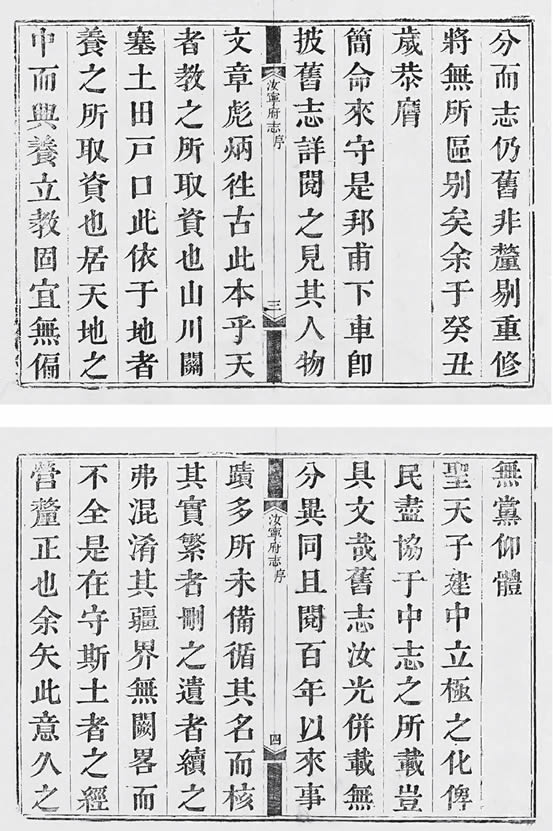 分而志仍舊非釐剔重修
將無所區别矣余于癸丑
歲恭膺
簡命來守是邦甫下車卽
披舊志詳閱之見其人物
汝寧府志
序
三
文章彪炳徃古此本乎天
者教之所取資也山川關
塞土田戸口此依于地者
養之所取資也居天地之
中而興養立教固宜無偏
無黨仰體
聖天子建中立極之化俾
民盡協于中志之所載豈
具文哉舊志汝光併載無
分異同且閱百年以來事
汝寧府志
序
四
蹟多所未備循其名而核
其實繁者刪之遺者續之
弗混淆其疆界無闕畧而
不全是在守斯土者之經
營釐正也余矢此意久之